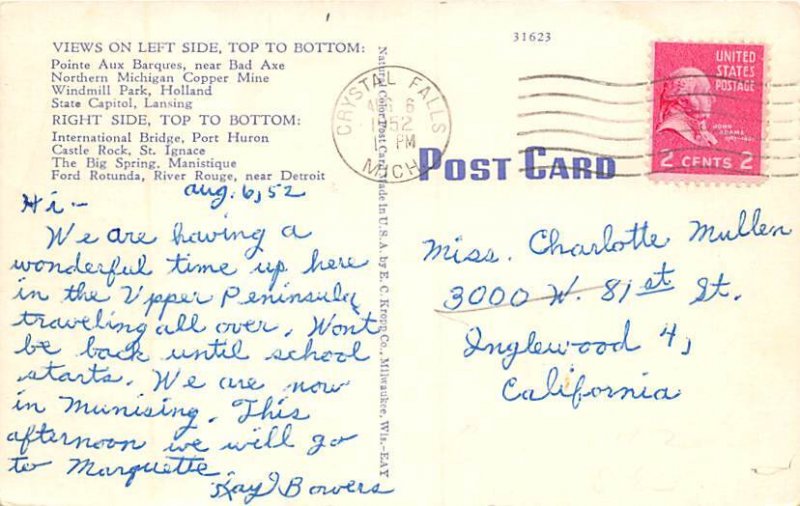 31623
VIEWS ON LEFT SIDE, TOP TO BOTTOM:
Pointe Aux Barques, near Bad Axe
Northern Michigan Copper Mine
Windmill Park, Holland
State Capitol, Lansing
RIGHT SIDE, TOP TO BOTTOM:
International Bridge, Port Huron
Castle Rock, St. Ignace
The Big Spring, Manistique
Ford Rotunda, River Rouge, near Detroit
Aug. 6, 52
Hi -
We are having a
wonderful time up here
in the Upper Peninsula
traveling all over. Wont
be back until school
starts. We are now
in Munising. This
afternoon we will go
to Marquette.
Kay Bowers
Natural Color Post Card Made in U.S.A. by E. C. Kropp Co., Milwaukee, Wis.—EAY
CRYSTAL FALLS
6
1952
PM
MICH
POST CARD
UNITED
STATES
POSTAGE
JOHN
ADAMS
2 CENTS 2
Miss. Charlotte Mullen
3000 W. 81st St.
Inglewood 4,
California